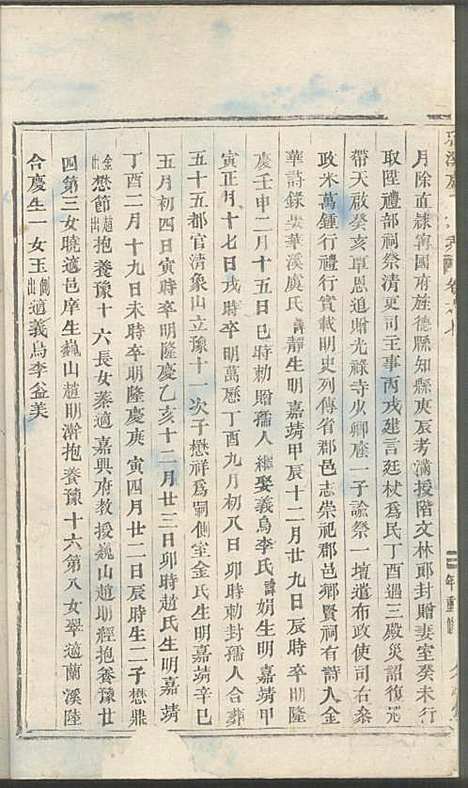 月除直隸寧國府旌德縣知縣庚辰考滿授階文林郎封贈妻室癸未行
取陞禮部祠祭清吏司主事丙戌建言廷杖為民丁酉遇三殿災詔復冠
帶天啟癸亥覃恩追贈光祿寺少卿廕一子諭祭一壇道布政使司右叅
政米萬鍾行禮行實載明史列傳省郡邑志崇祀郡邑鄉賢祠有詩入金
華詩錄娶華溪虞氏諱靜生明嘉靖甲辰十二月廿九日辰時卒明隆
慶壬申二月十五日巳時勅贈孺人繼娶義烏李氏諱娟生明嘉靖甲
寅正月十七日戌時卒明萬曆丁酉九月初八日卯時勅封孺人合葬
五十五都官清象山立豫十一次子懋祥為嗣側室金氏生明嘉靖辛巳
五月初四日寅時卒明隆慶乙亥十二月廿三日卯時趙氏生明嘉靖
丁酉二月十九日未時卒明隆慶庚寅四月廿二日辰時生二子懋鼎
金出懋節趙出抱養豫十六長女蓁適嘉興府教授巍山趙明經抱養豫廿
四第三女曉適邑庠生巍山趙明澣抱養豫十六第八女翠適蘭溪陸
合慶生一女玉側出適義烏李益美
年重修